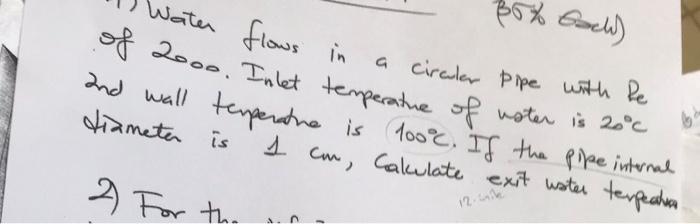 (35% Each)
1) Water flows in a circular pipe with Re
of 2000. Inlet temperature of water is 20°C
and wall temperature is 100°C. If the pipe internal
diameter is 1 cm, Calculate exit water temperature
2) For the